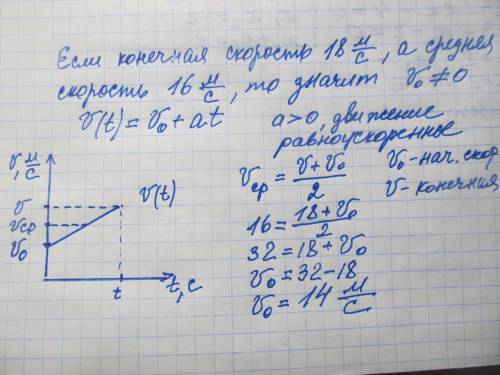 Если конечная скорость 18 м/с, а средняя
скорость 16 м/с, то значит v₀ ≠ 0
v(t) = v₀ + at
a > 0, движение
равноускоренные
vср = (v + v₀)/2
v₀ - нач. скор
v - конечная
16 = (18 + v₀)/2
32 = 18 + v₀
v₀ = 32 - 18
v₀ = 14 м/с
v, м/с
v
vср
v₀
v(t)
t
t, с